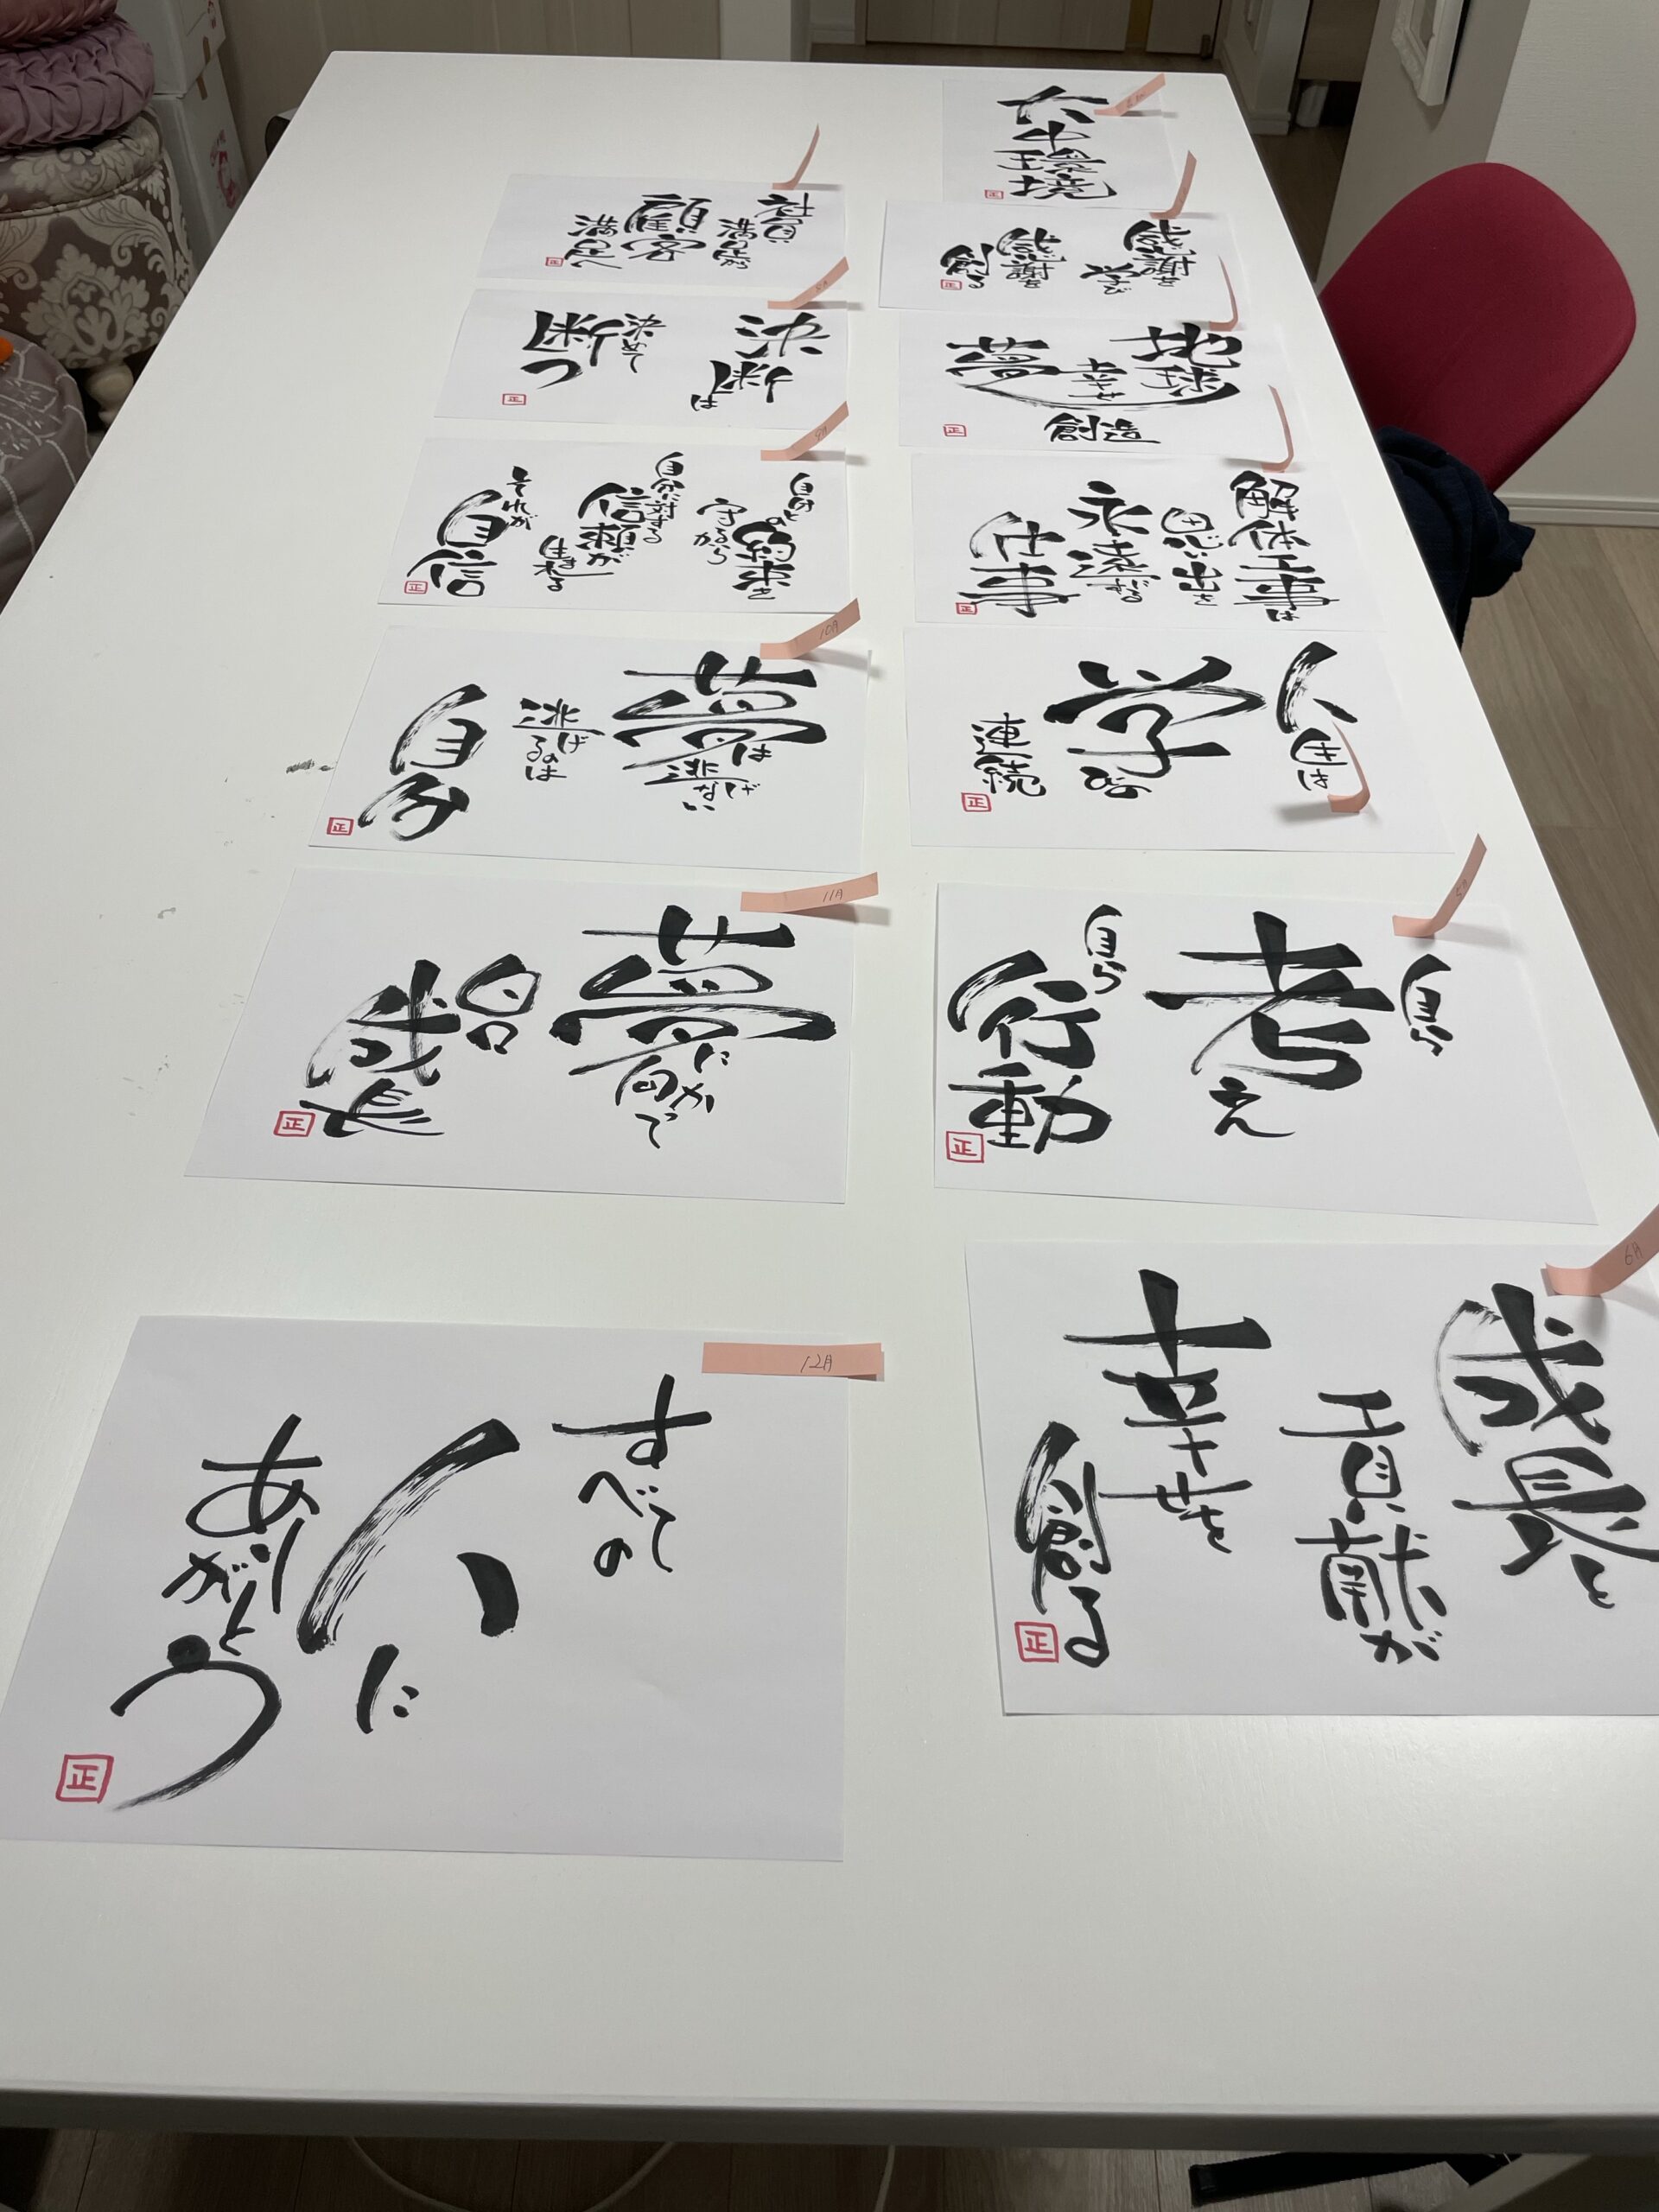 六中環境
正
感謝を
学び
感謝を
創る
正
地球
幸せ
夢
創造
正
解体工事は
思い出を
永遠に
仕事
正
人生は
学びの
連続
正
自ら
考え
自ら
行動
正
6月
成長と
貢献が
幸せを
創る
正
社員
満足が
顧客
満足へ
正
決断は
決めて
断つ
正
9月
自分との
約束を
守るから
自分に対する
信頼が
生まれる
それが
自信
正
10月
夢は
逃げない
逃げるのは
自分
正
11月
夢に
向かって
日々
成長
正
12月
すべての
人に
ありがとう
正